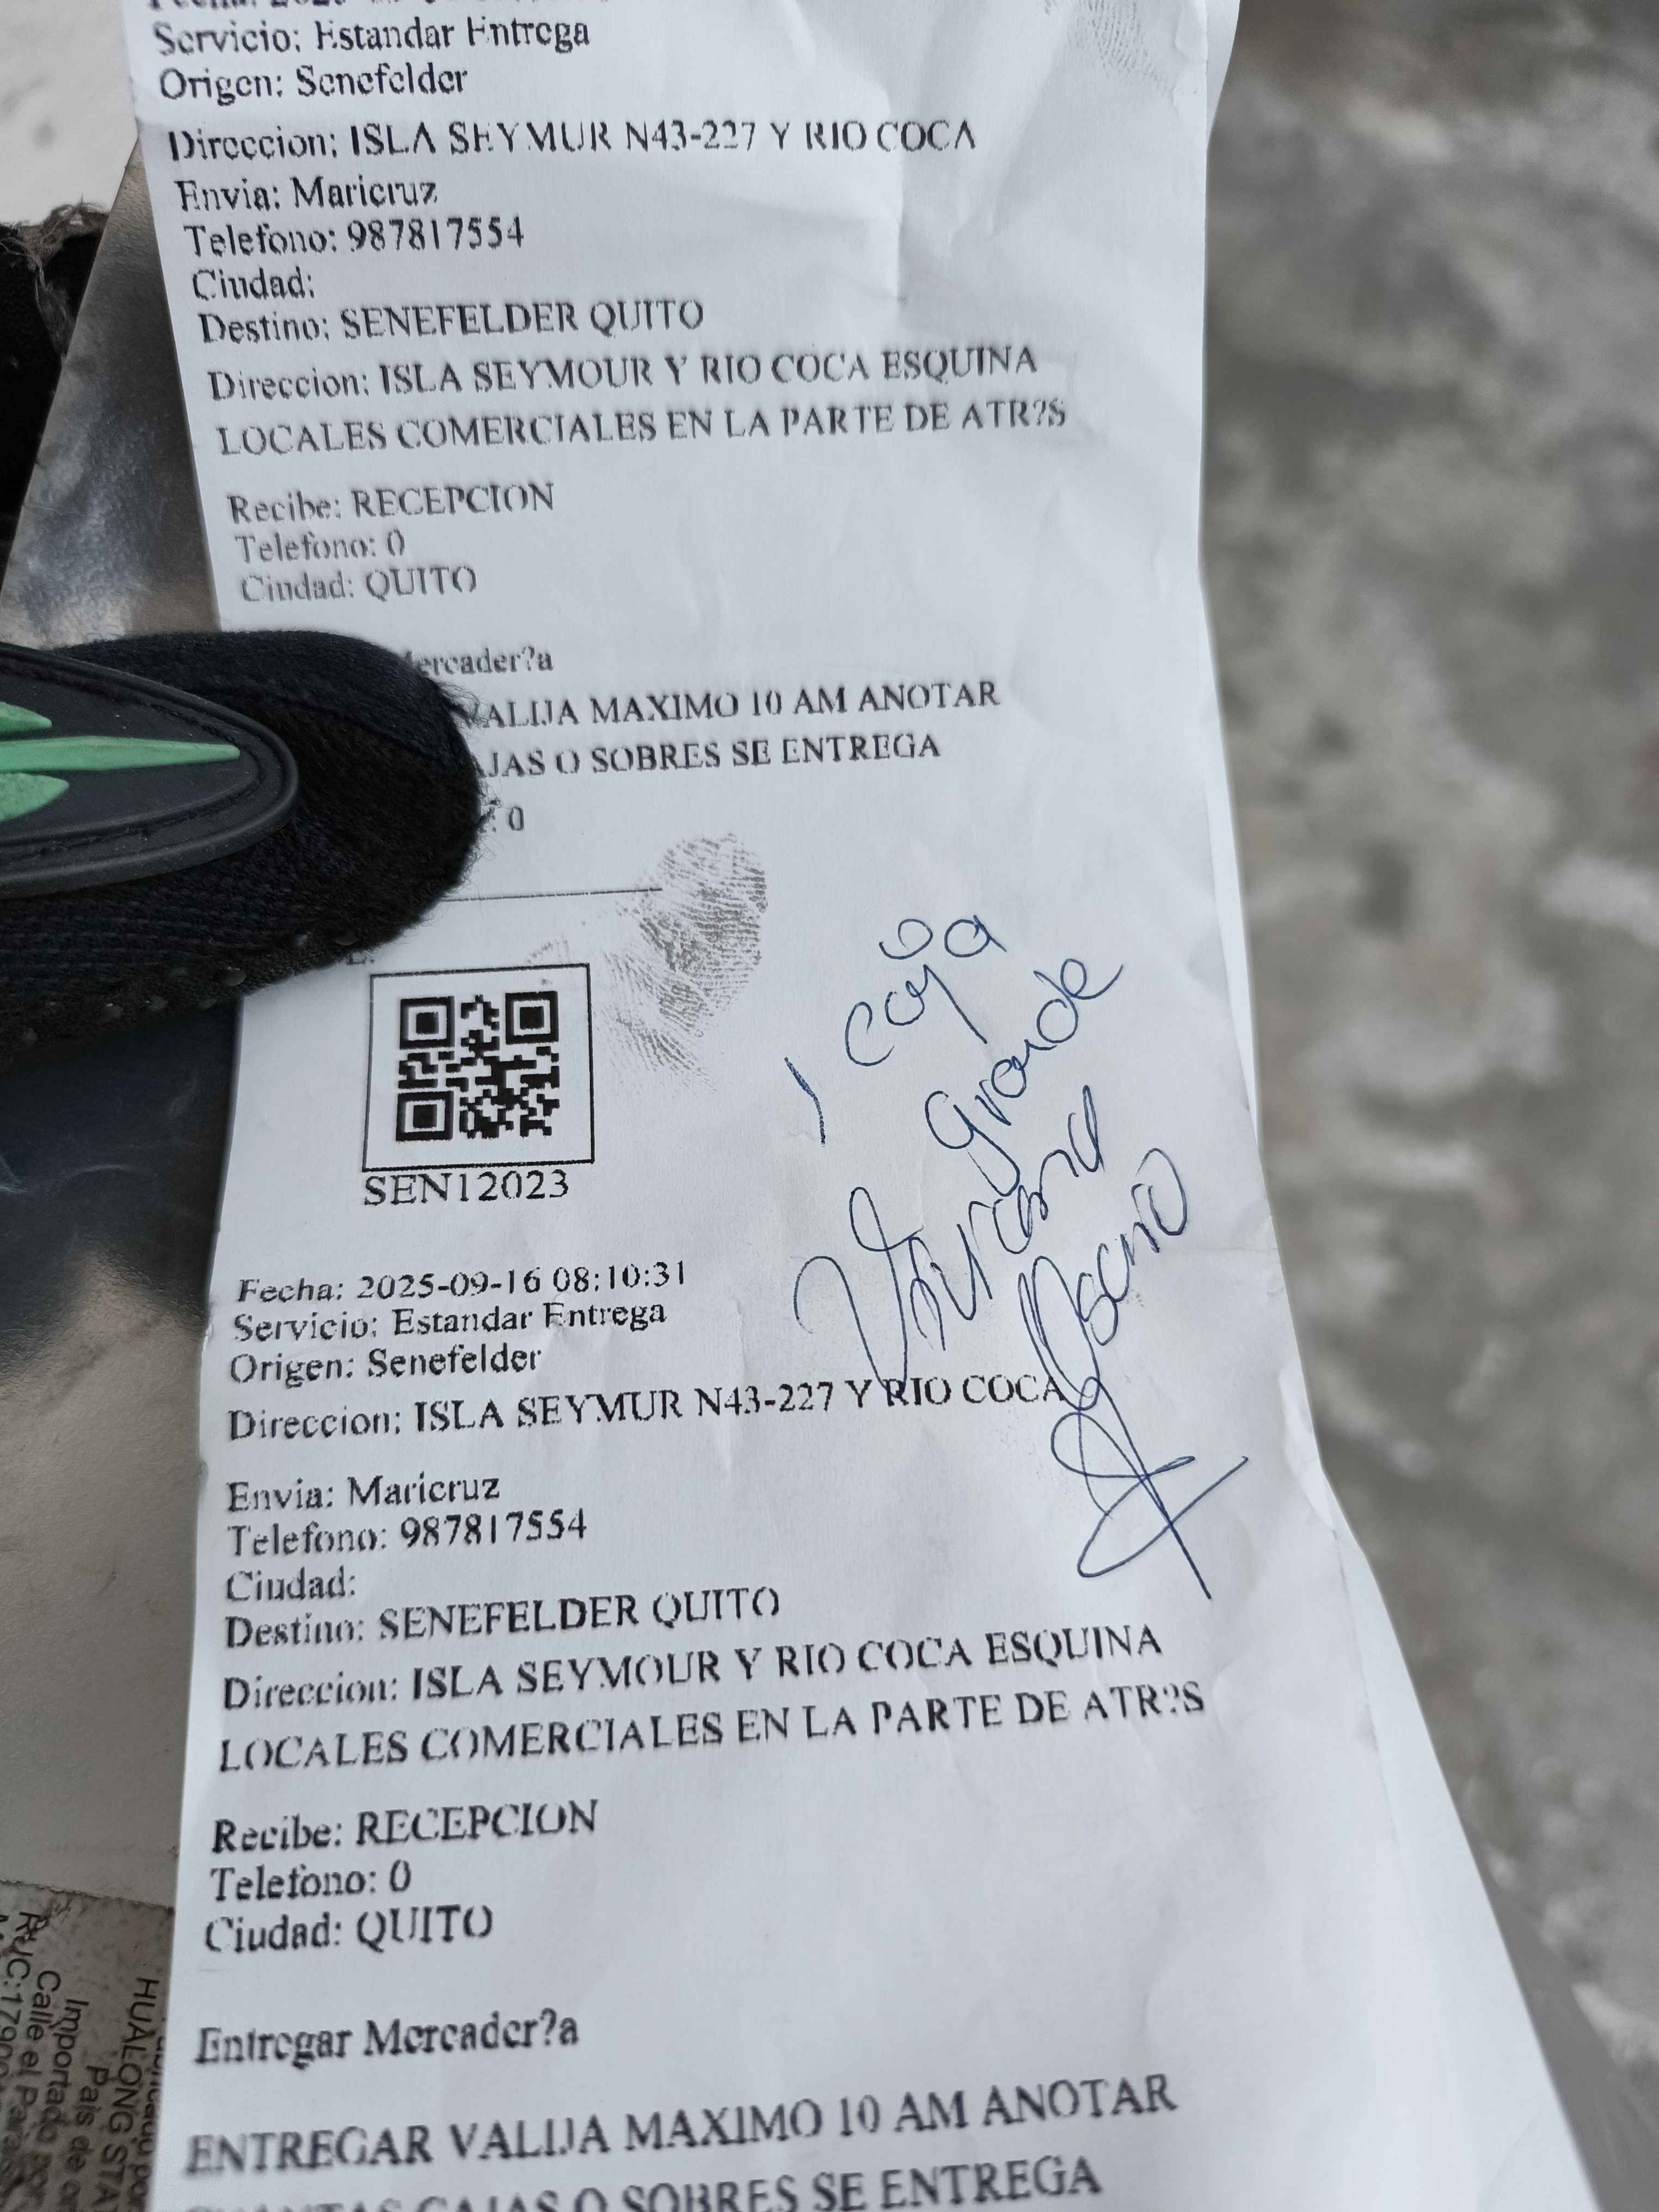 Servicio: Estandar Entrega
Origen: Senefelder
Direccion: ISLA SEYMUR N43-227 Y RIO COCA
Envia: Maricruz
Telefono: 987817554
Ciudad:
Destino: SENEFELDER QUITO
Direccion: ISLA SEYMOUR Y RIO COCA ESQUINA
LOCALES COMERCIALES EN LA PARTE DE ATR?S
Recibe: RECEPCION
Telefono: 0
Ciudad: QUITO
Mercader?a
VALIJA MAXIMO 10 AM ANOTAR
CAJAS O SOBRES SE ENTREGA
: 0
1 caja
grande
SEN12023
Fecha: 2025-09-16 08:10:31
Servicio: Estandar Entrega
Origen: Senefelder
Direccion: ISLA SEYMUR N43-227 Y RIO COCA
Envia: Maricruz
Telefono: 987817554
Ciudad:
Destino: SENEFELDER QUITO
Direccion: ISLA SEYMOUR Y RIO COCA ESQUINA
LOCALES COMERCIALES EN LA PARTE DE ATR?S
Recibe: RECEPCION
Telefono: 0
Ciudad: QUITO
Entregar Mercader?a
ENTREGAR VALIJA MAXIMO 10 AM ANOTAR
CAJAS O SOBRES SE ENTREGA
HUALONG
País de
Importado por
Calle el